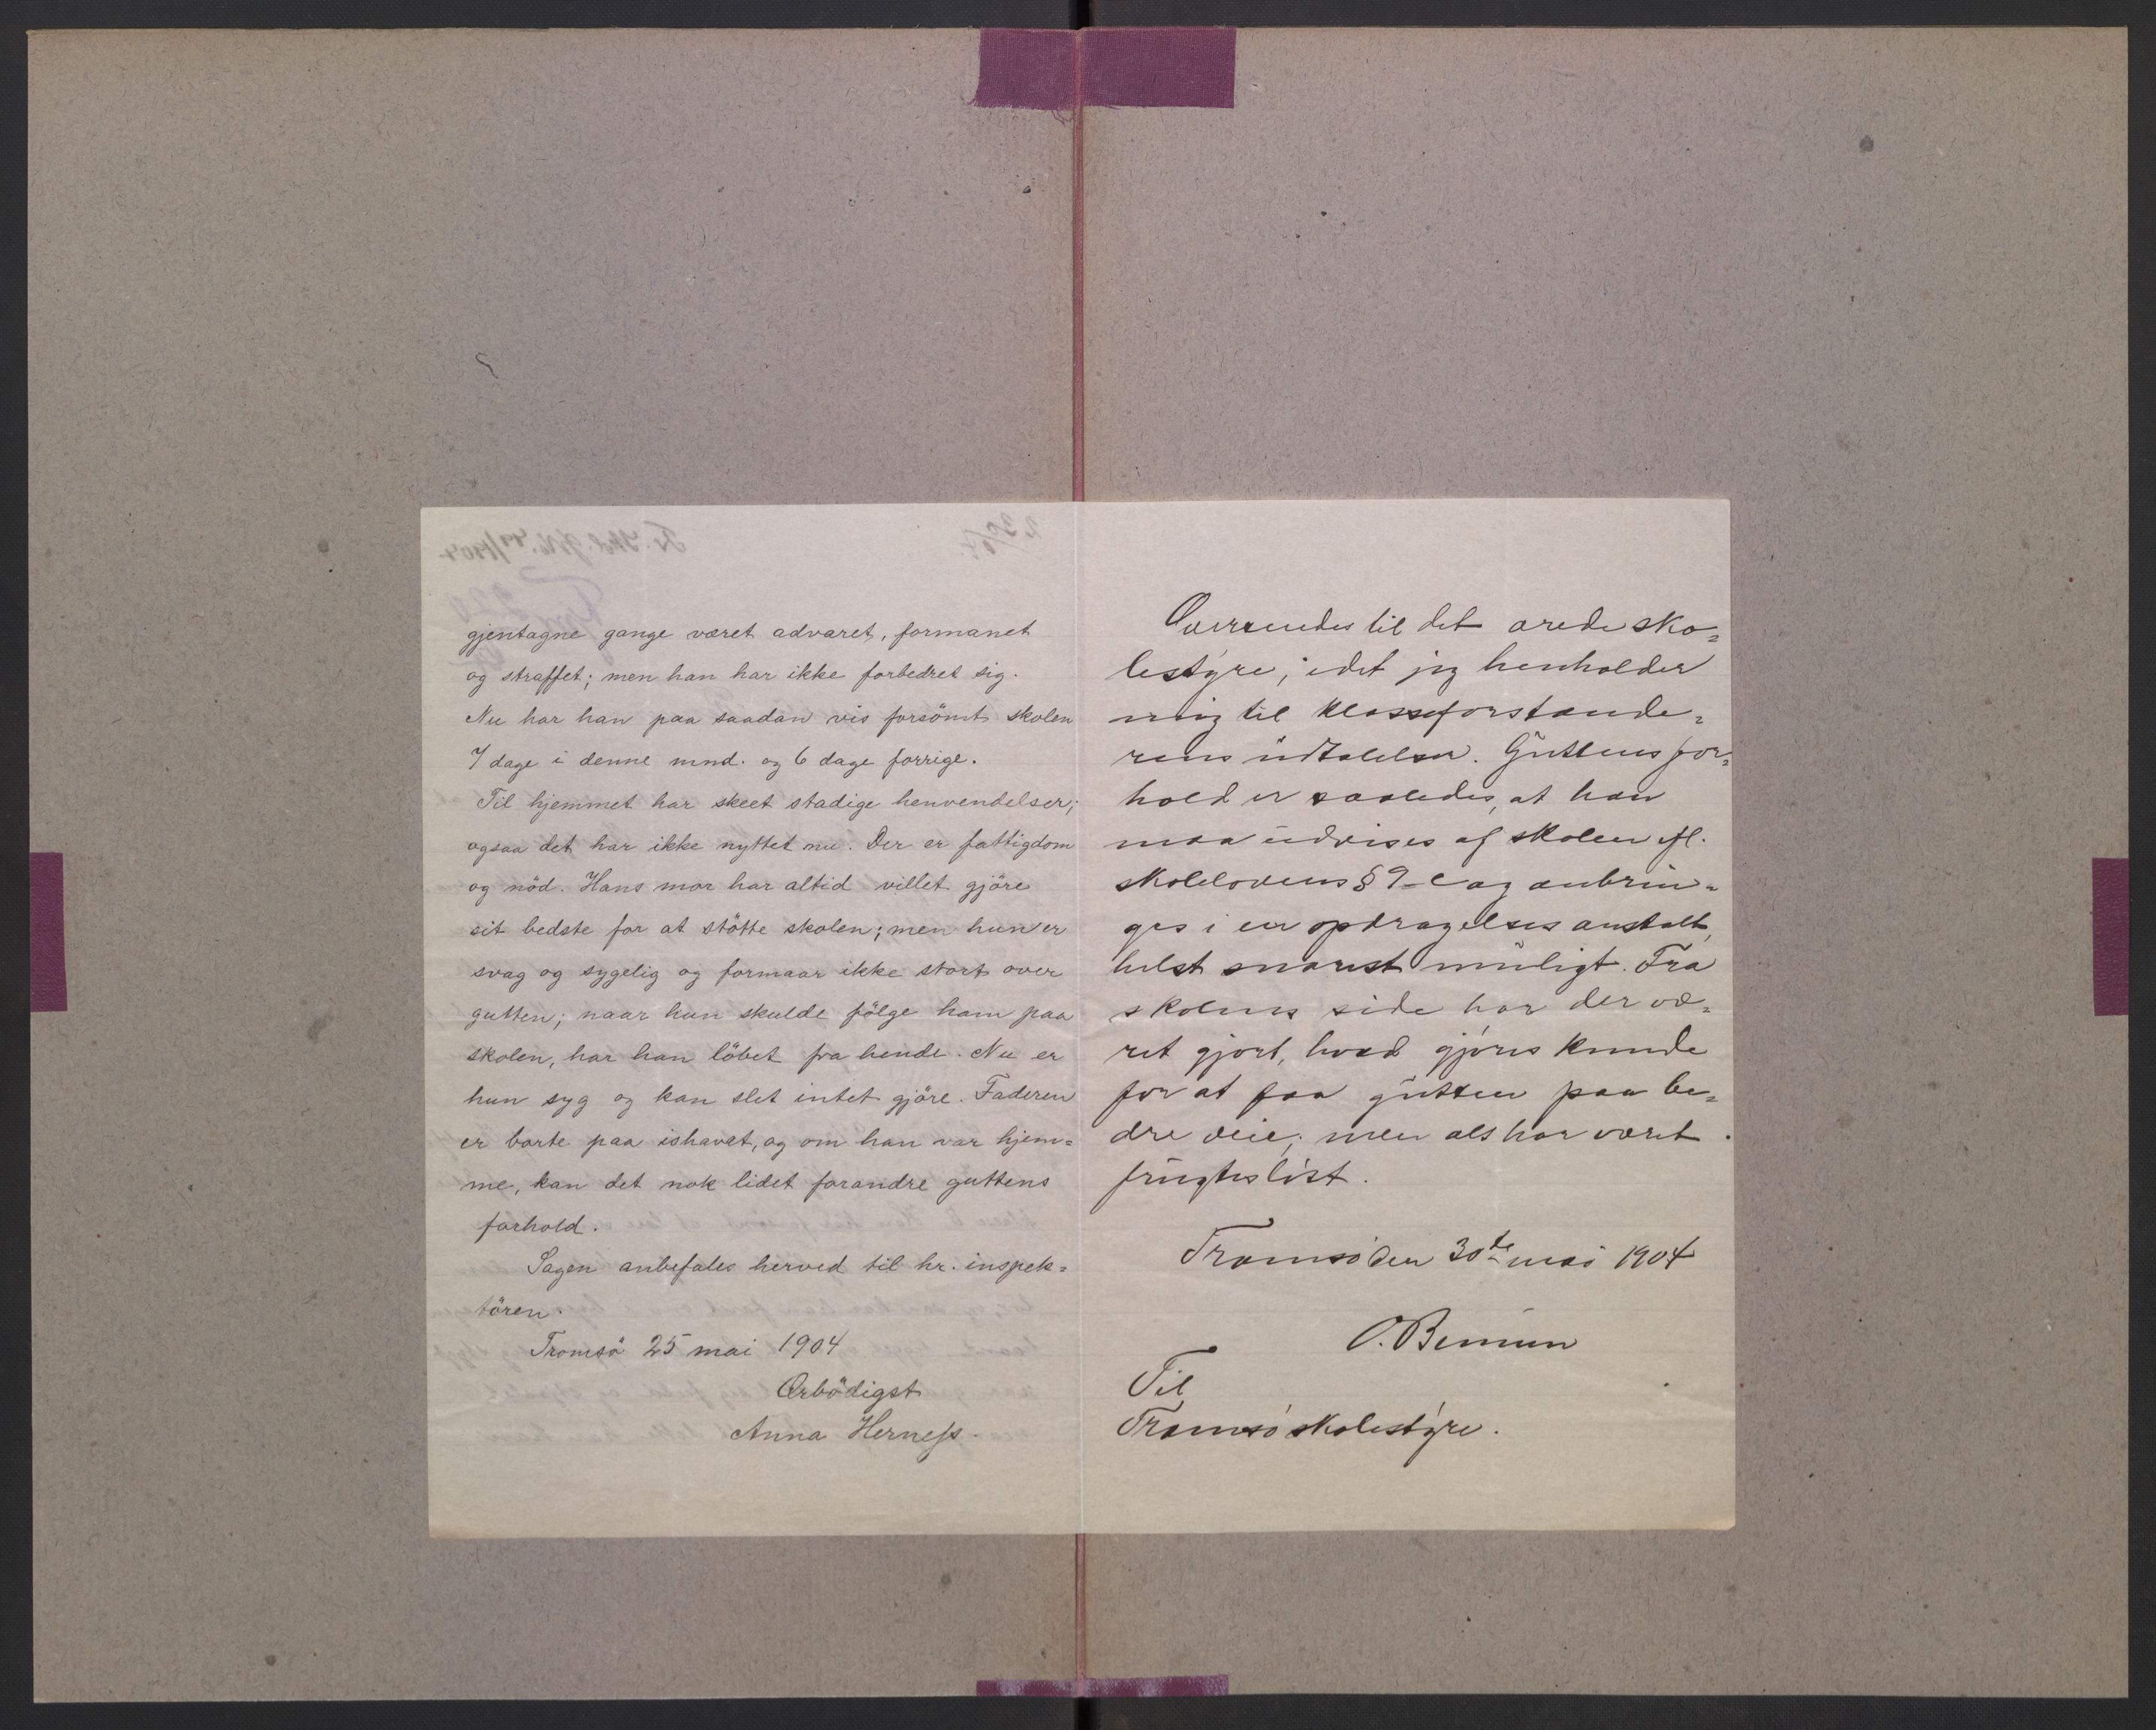 gjentagne gange været advaret, formanet
og straffet; men han har ikke forbedret sig.
Nu har han paa saadan vis forsömt skolen
7 dage i denne mnd. og 6 dage forrige.
Til hjemmet har skeet stadige henvendelser;
ogsaa det har ikke nyttet nu. Der er fattigdom
og nöd. Hans mor har altid villet gjöre
sit bedste for at stötte skolen; men hun er
svag og sygelig og formaar ikke stort over
gutten; naar hun skulde fölge ham paa
skolen, har han löbet fra hende. Nu er
hun syg og kan slet intet gjöre. Faderen
er borte paa ishavet, og om han var hjem=
me, kan det nok lidet forandre guttens
forhold.
Sagen anbefales herved til hr. inspek=
tören.
Tromsö 25 mai 1904
Ærbödigst
Anna Herness.
Oversendes til det ærede sko=
lestyre, idet jeg henholder
mig til klasseforstande=
rens udtalelser. Guttens for=
hold er saaledes, at han
maa udvises af skolen ifl.
skolelovens § 9 - e og anbrin=
ges i en opdragelsesanstalt,
helst snarest muligt. Fra
skolens side har der væ=
ret gjort, hvad gjöres kunde
for at faa gutten paa be=
dre veie; men alt har været
frugtesløst.
Tromsö den 30te mai 1904
O.
Til
Tromsö skolestyre.